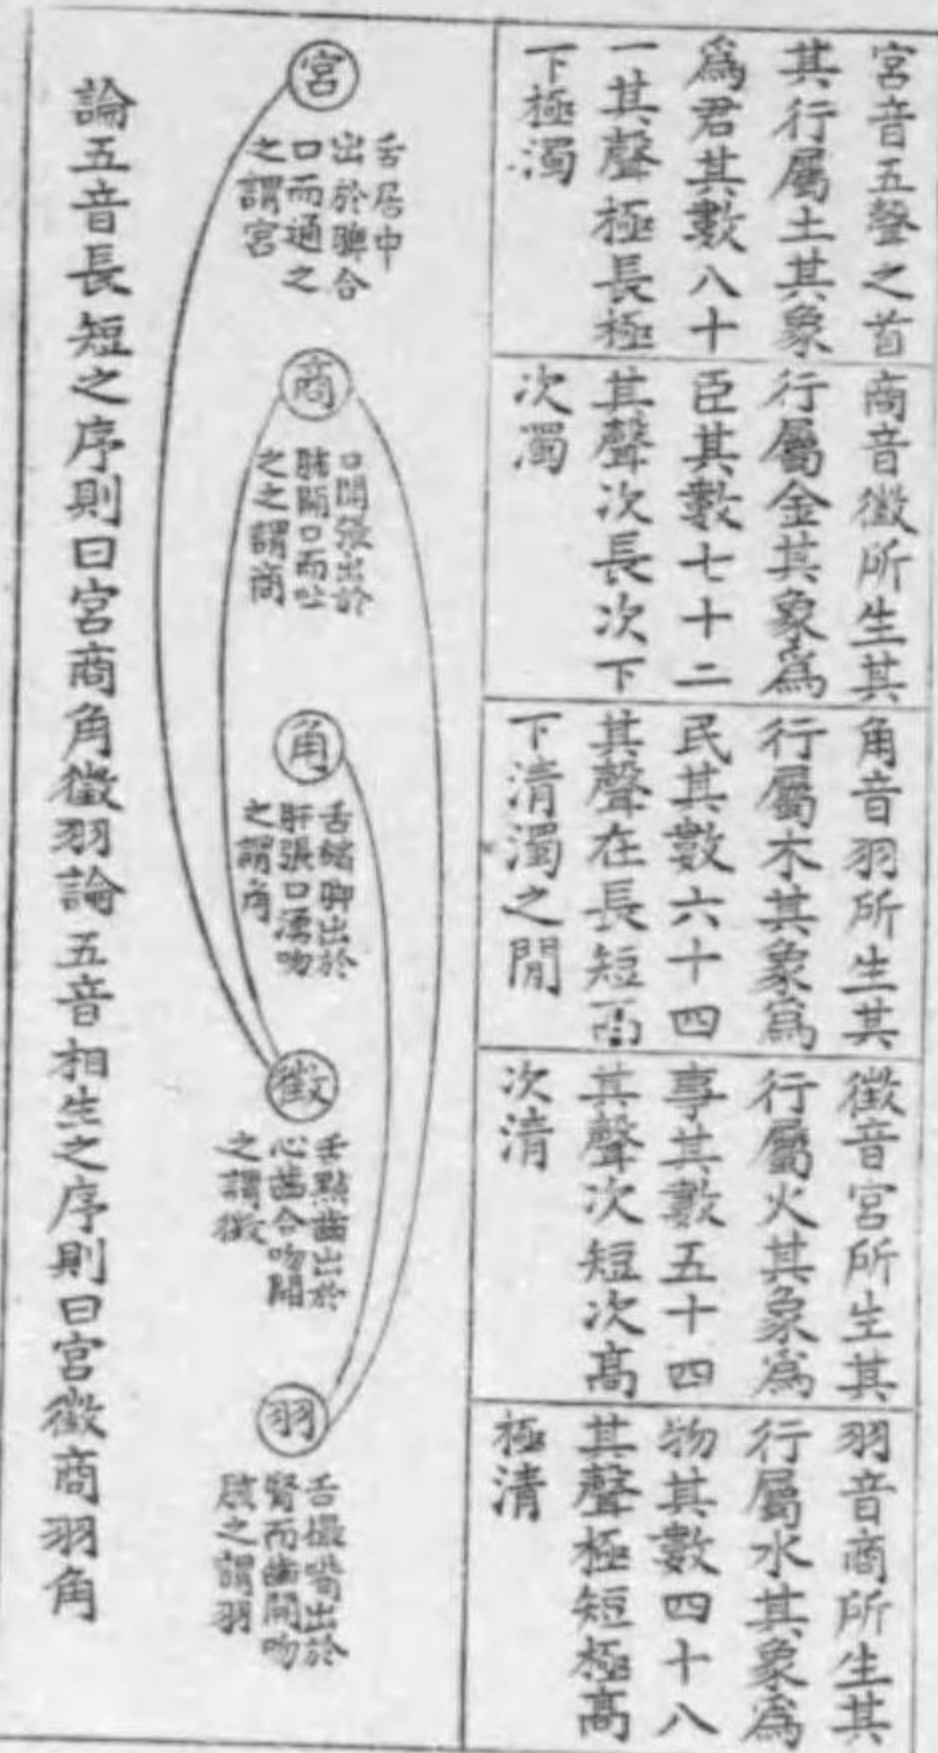 宮音五聲之首
其行屬土其象
爲君其數八十
一其聲極長極
下極濁
商音徵所生其
行屬金其象爲
臣其數七十二
其聲次長次下
次濁
角音羽所生其
行屬木其象爲
民其數六十四
其聲在長短高
下清濁之間
徵音宮所生其
行屬火其象爲
事其數五十四
其聲次短次高
次清
羽音商所生其
行屬水其象爲
物其數四十八
其聲極短極高
極清
宮
舌居中
出於脾合
口而通之
之謂宮
商
口開張出於
肺開口而吐
之之謂商
角
舌縮卻出於
肝張口湧吻
之謂角
徵
舌點齒出於
心齒合吻開
之謂徵
羽
舌撮嘴出於
腎而齒開吻
之謂羽
論五音長短之序則曰宮商角徵羽論五音相生之序則曰宮徵商羽角